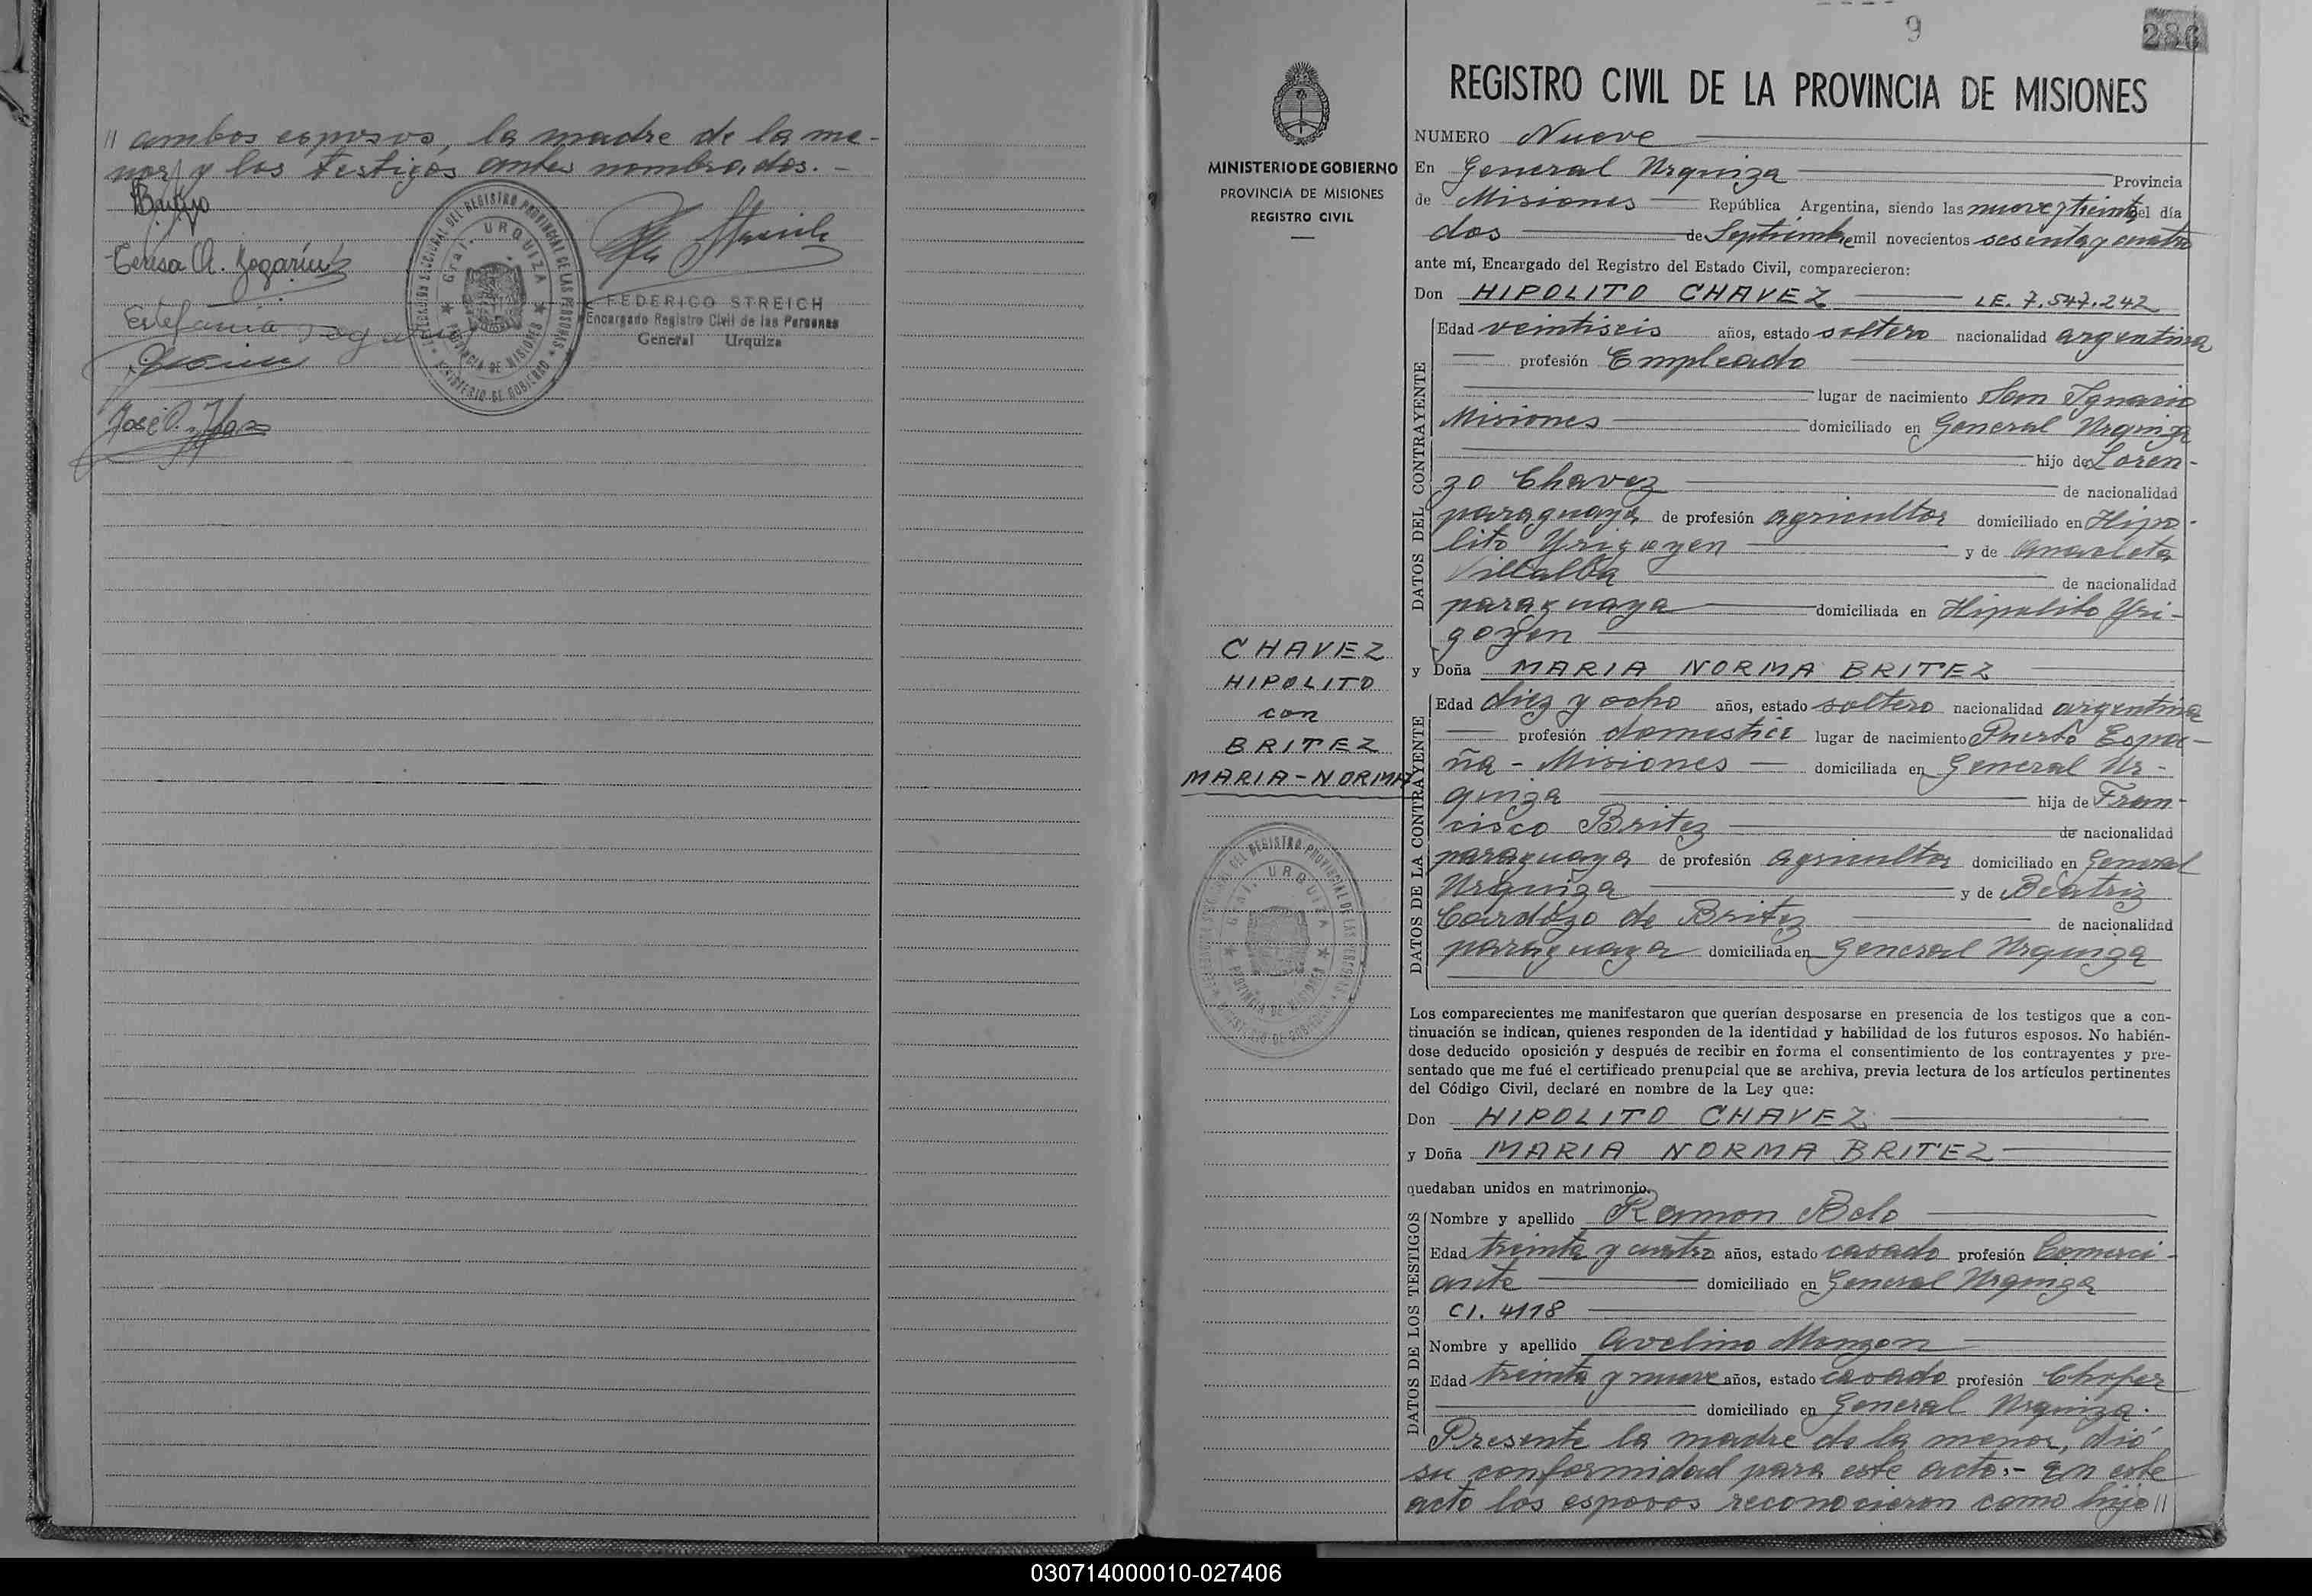 // ambos esposos, la madre de la me-
nor y los testigos antes nombrados. -
Teresa A. Zogarius
Estefania
José O.
JEFATURA SECCIONAL DEL REGISTRO PROVINCIAL DE LAS PERSONAS
Gral. URQUIZA
PROVINCIA DE MISIONES
MINISTERIO DE GOBIERNO
FEDERICO STREICH
Encargado Registro Civil de las Personas
General Urquiza
MINISTERIO DE GOBIERNO
PROVINCIA DE MISIONES
REGISTRO CIVIL
CHAVEZ
HIPOLITO
con
BRITEZ
MARIA-NORMA
Gral. URQUIZA
PROVINCIA DE MISIONES
9
286
REGISTRO CIVIL DE LA PROVINCIA DE MISIONES
NUMERO Nueve
En General Urquiza Provincia
de Misiones República Argentina, siendo las nueve y treinta del día
dos de Septiembre mil novecientos sesenta y cuatro
ante mí, Encargado del Registro del Estado Civil, comparecieron:
Don HIPOLITO CHAVEZ LE. 7.547.242
DATOS DEL CONTRAYENTE
Edad veintiseis años, estado soltero nacionalidad argentina
profesión Empleado
lugar de nacimiento San Ignacio
Misiones domiciliado en General Urquiza
hijo de Loren-
zo Chavez de nacionalidad
paraguaya de profesión agricultor domiciliado en Hipo-
lito Yrigoyen y de Anacleta
Villalba de nacionalidad
paraguaya domiciliada en Hipolito Yri-
goyen
y Doña MARIA NORMA BRITEZ
DATOS DE LA CONTRAYENTE
Edad diez y ocho años, estado soltero nacionalidad argentina
profesión domestica lugar de nacimiento Puerto Espa-
ña - Misiones domiciliada en General Ur-
quiza hija de Fran-
cisco Britez de nacionalidad
paraguaya de profesión agricultor domiciliado en General
Urquiza y de Beatriz
Cardozo de Britez de nacionalidad
paraguaya domiciliada en General Urquiza
Los comparecientes me manifestaron que querían desposarse en presencia de los testigos que a con-
tinuación se indican, quienes responden de la identidad y habilidad de los futuros esposos. No habién-
dose deducido oposición y después de recibir en forma el consentimiento de los contrayentes y pre-
sentado que me fué el certificado prenupcial que se archiva, previa lectura de los artículos pertinentes
del Código Civil, declaré en nombre de la Ley que:
Don HIPOLITO CHAVEZ
y Doña MARIA NORMA BRITEZ
quedaban unidos en matrimonio.
DATOS DE LOS TESTIGOS
Nombre y apellido Ramon Belo
Edad treinta y cuatro años, estado casado profesión Comerci-
ante domiciliado en General Urquiza
CI. 4118
Nombre y apellido Avelino Monzon
Edad treinta y nueve años, estado casado profesión Chofer
domiciliado en General Urquiza.
Presente la madre de la menor, dió
su conformidad para este acto.- En este
acto los esposos reconocieron como hijo //
030714000010-027406